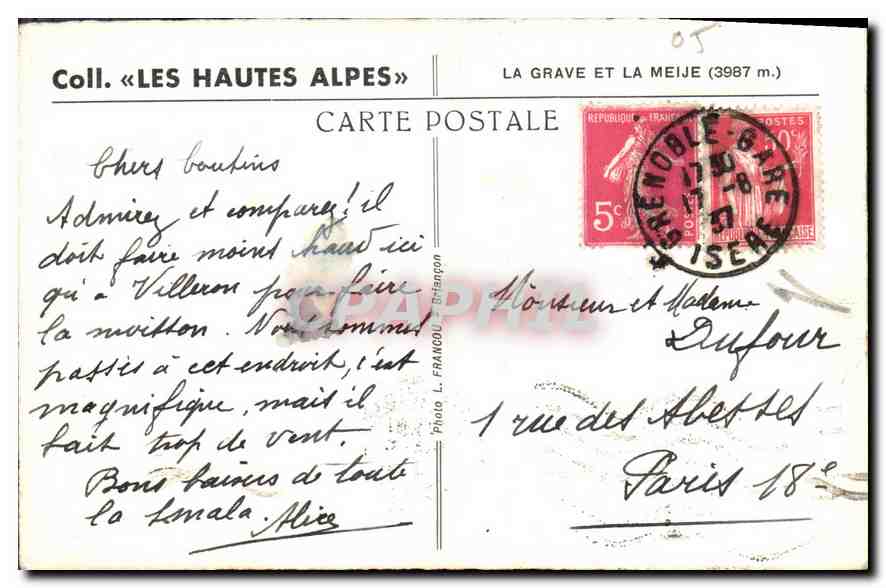 05
Coll. «LES HAUTES ALPES»
LA GRAVE ET LA MEIJE (3987 m.)
CARTE POSTALE
Chers cousins
Admirez et comparez! il
doit faire moins chaud ici
qu'à Villeron pour faire
la moisson. Nous sommes
passés à cet endroit, c'est
magnifique, mais il
fait trop de vent.
Bons baisers de toute
la smala. Alice
Photo L. FRANCOU - Briançon
REPUBLIQUE FRANCAISE
5c
POSTES
POSTES
50c
REPUBLIQUE FRANCAISE
GRENOBLE-GARE
17 30
-8
37
ISERE
Monsieur et Madame
Dufour
1 rue des Abesses
Paris 18e
CPAPHIL